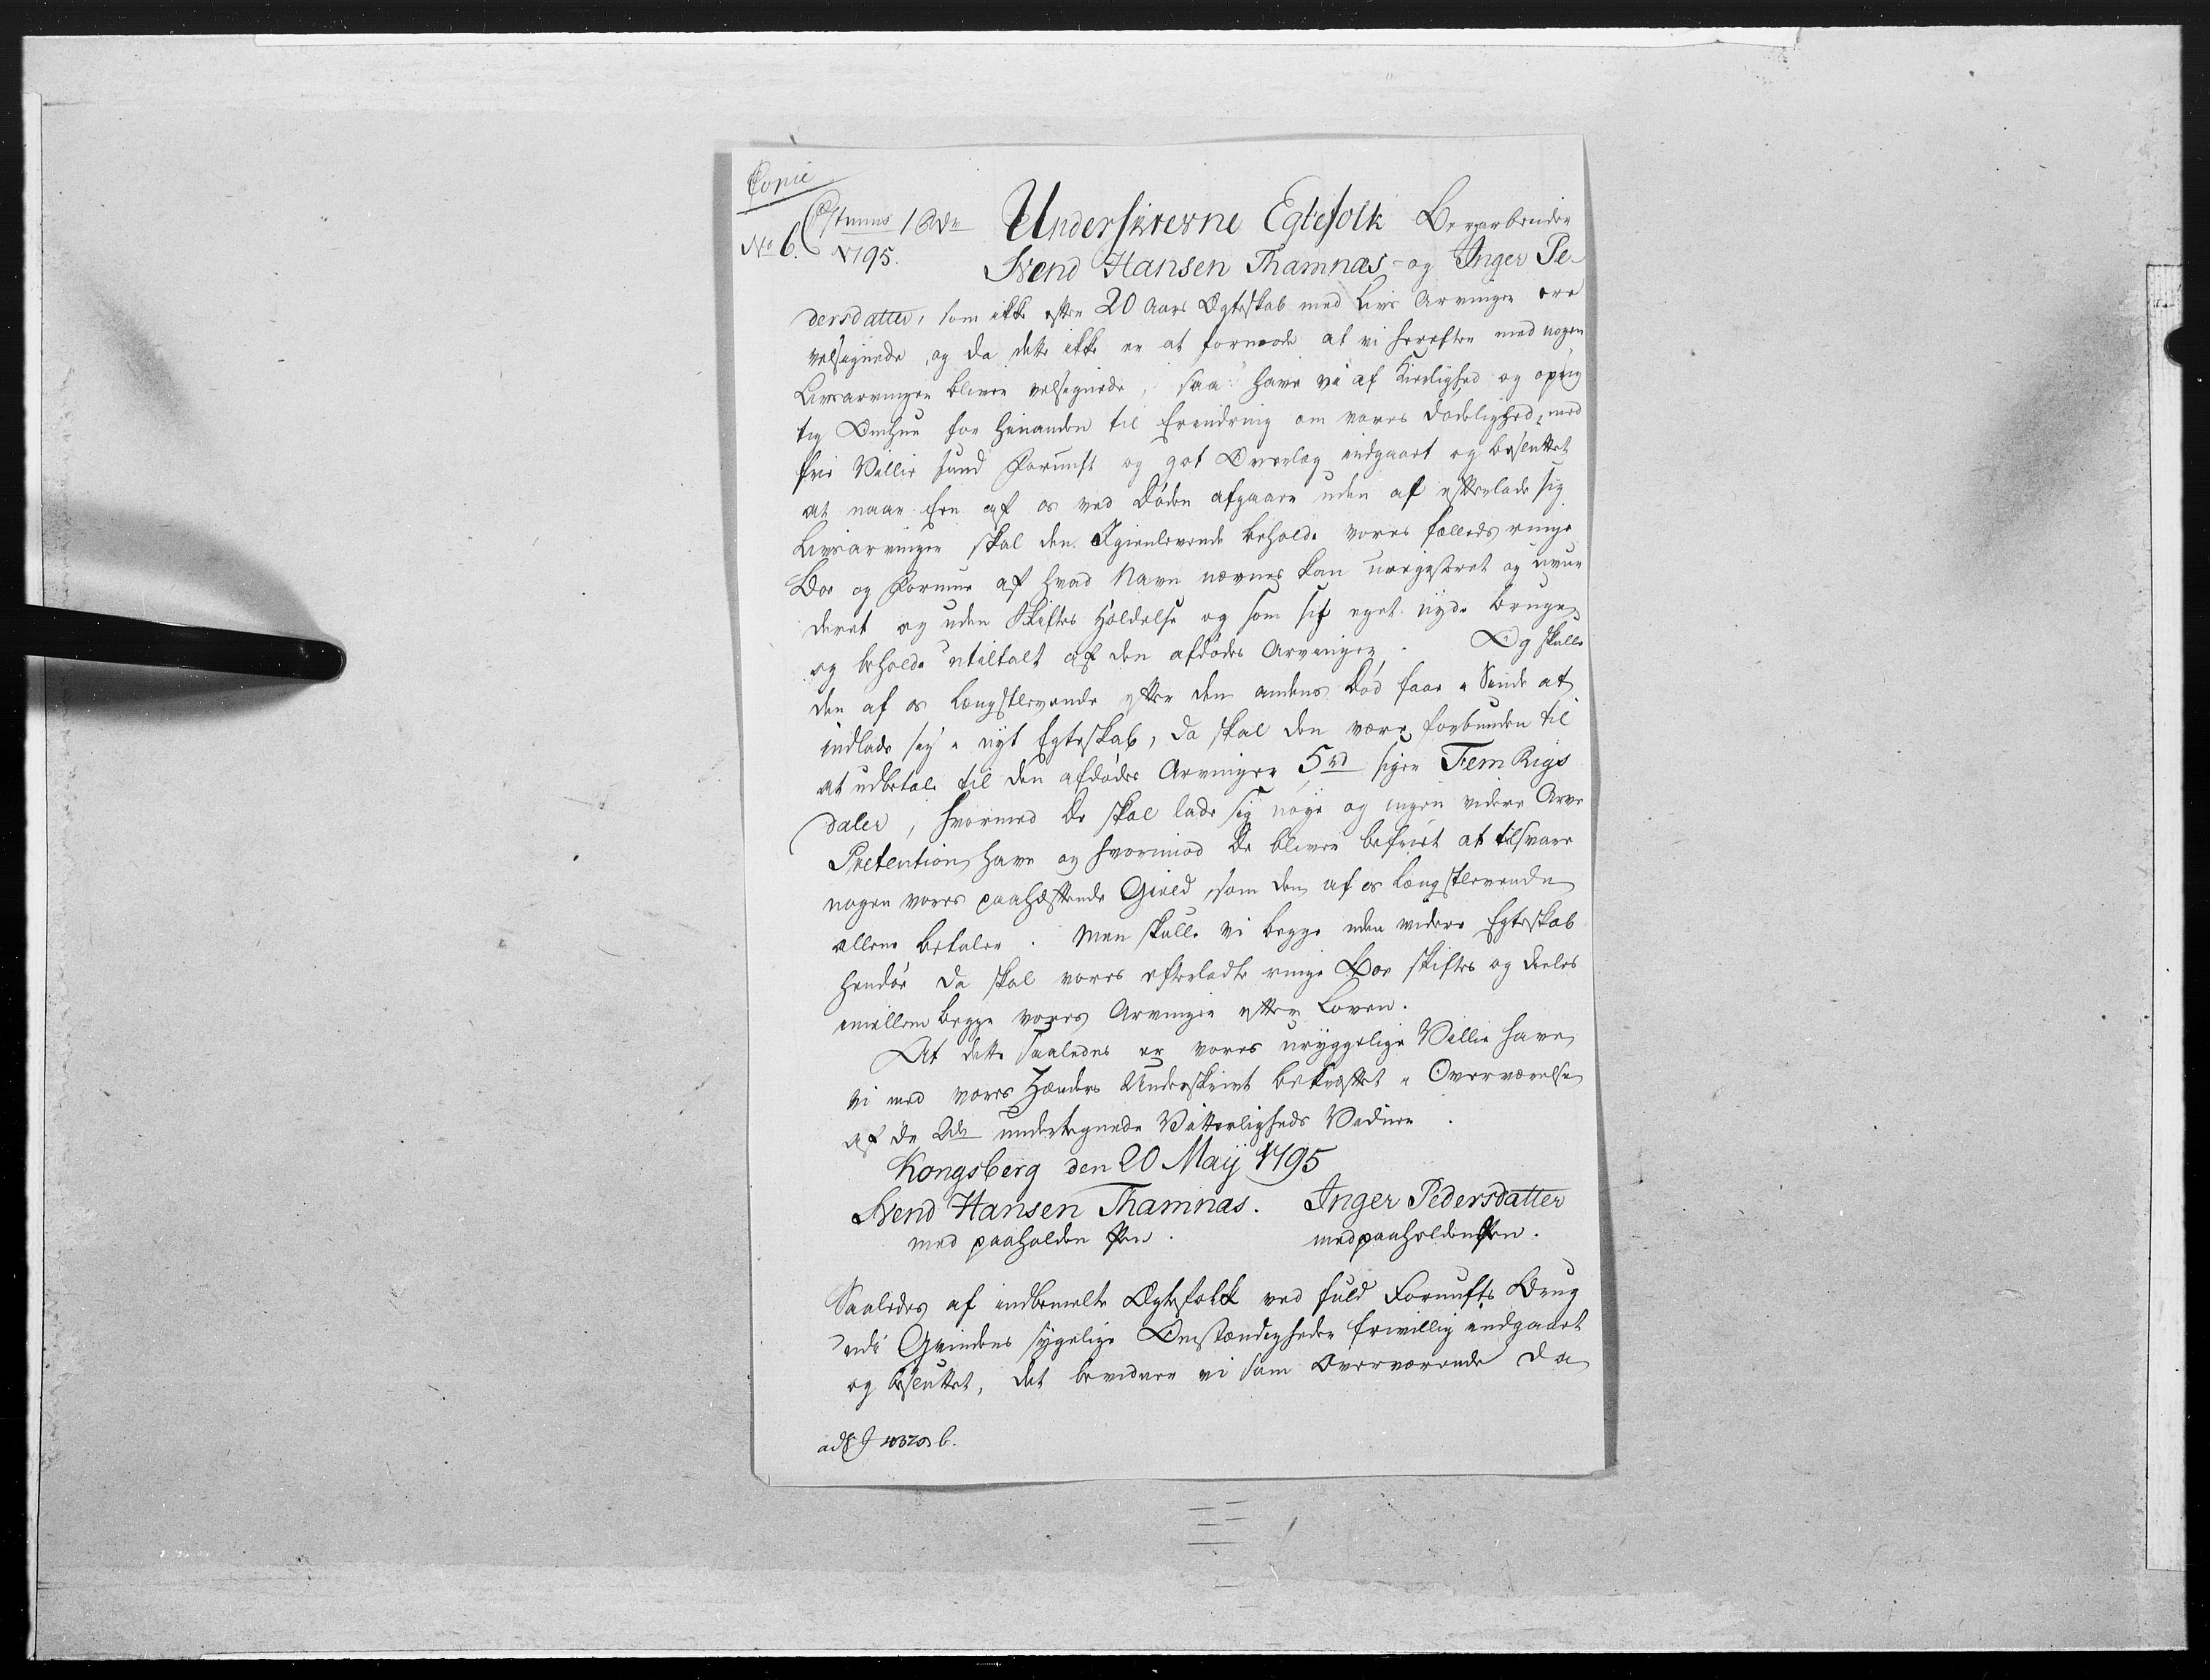 Copie
No 6.
1795.
Underskrevne Egtefolk Bergarbeider
Svend Hansen Thamnæs og Inger Pe-
dersdatter, som ikke efter 20 Aars Ægteskab med Livs Arvinger ere
velsignede, og da dette ikke er at formode at vi herefter med nogen
Livsarvinger bliver velsignede, saa have vi af Kierlighed og oprig
tig Omhue for hinanden til Erindring om vores dødelighed, med
frie Villie sund Fornuft og got Overlæg indgaaet og besluttet
at naar Een af os ved Døden afgaaer uden at efterlade sig
Livsarvinger skal den Igienlevende beholde vores fælleds ringe
Boe og Formue af hvad Navn nævnes kan uregistreret og uvur
deret og uden Skiftes Holdelse og som sit eget nyde bruge
og beholde utiltalt af den afdødes Arvinger. Og skulle
den af os Længstlevende efter den andens Død faae i Sinde at
indlade sig i nyt Egteskab, da skal den være forbunden til
at udbetale til den afdødes Arvinger 5 rd siger Fem Rigs
daler, hvormed De skal lade sig nøye og ingen videre Arve
Pretention have og hvorimod De bliver befriet at tilsvare
nogen vores paahæftende Gield, som den af os længstlevende
allene betaler. Men skulle vi begge uden videre Egteskab
hendøe da skal vores efterladte ringe Boe skiftes og deeles
imellem begge vores Arvinger efter Loven.
At dette saaledes er vores uryggelige Villie have
vi med vores Hænders Underskrivt bekræftet i Overværelse
af de undertegnede Vitterligheds Vidner.
Kongsberg den 20 Maij 1795
Svend Hansen Thamnæs. Inger Pedersdatter
med paaholden Pen. med paaholden Pen.
Saaledes af indbemelte Ægtefolk ved fuld Fornufts Brug
udi Qvindens sygelige Omstændigheder frivillig indgaaet
og besluttet, det bevidner vi som Overværende da